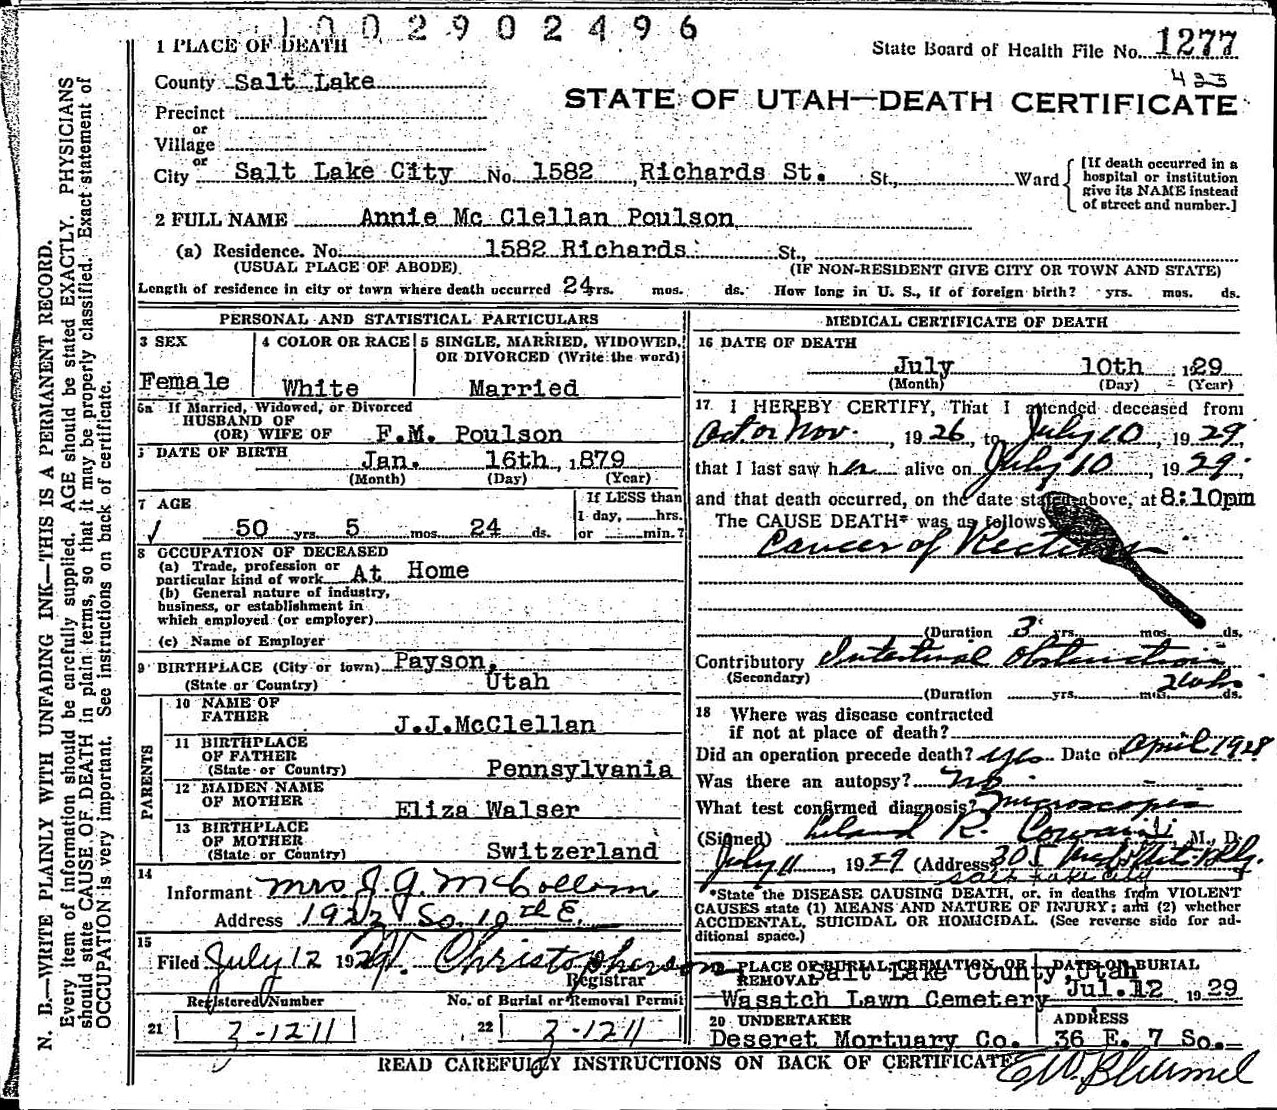 1002902496
1 PLACE OF DEATH
State Board of Health File No. 1277
423
County Salt Lake
STATE OF UTAH—DEATH CERTIFICATE
Precinct
or
Village
or
City Salt Lake City No. 1582 Richards St. St., Ward
[If death occurred in a
hospital or institution
give its NAME instead
of street and number.]
2 FULL NAME Annie Mc Clellan Poulson
(a) Residence. No. 1582 Richards St.,
(USUAL PLACE OF ABODE) (IF NON-RESIDENT GIVE CITY OR TOWN AND STATE)
Length of residence in city or town where death occurred 24 yrs. mos. ds. How long in U. S., if of foreign birth? yrs. mos. ds.
PERSONAL AND STATISTICAL PARTICULARS
3 SEX
Female
4 COLOR OR RACE
White
5 SINGLE, MARRIED, WIDOWED,
OR DIVORCED (Write the word)
Married
5a If Married, Widowed, or Divorced
HUSBAND OF
(OR) WIFE OF F.M. Poulson
DATE OF BIRTH
Jan. 16th, 1879
(Month) (Day) (Year)
7 AGE
If LESS than
1 day, hrs.
50 yrs. 5 mos. 24 ds. or min.?
8 OCCUPATION OF DECEASED
(a) Trade, profession or
particular kind of work At Home
(b) General nature of industry,
business, or establishment in
which employed (or employer)
(c) Name of Employer
9 BIRTHPLACE (City or town) Payson,
(State or Country) Utah
PARENTS
10 NAME OF
FATHER J.J.McClellan
11 BIRTHPLACE
OF FATHER
(State or Country) Pennsylvania
12 MAIDEN NAME
OF MOTHER Eliza Walser
13 BIRTHPLACE
OF MOTHER
(State or Country) Switzerland
14
Informant Mrs J. G. McCollom
Address 1922 So. 10th E.
15
Filed July 12 1929 Christopherson
Registrar
Registered Number No. of Burial or Removal Permit
21 3-1211 22 3-1211
MEDICAL CERTIFICATE OF DEATH
16 DATE OF DEATH
July 10th 1929
(Month) (Day) (Year)
17 I HEREBY CERTIFY, That I attended deceased from
Oct or Nov. , 1926, to July 10, 1929,
that I last saw her alive on July 10, 1929,
and that death occurred, on the date stated above, at 8:10pm
The CAUSE DEATH* was as follows:
Cancer of Rectum
(Duration 3 yrs. mos. ds.
Contributory Intestinal Obstruction
(Secondary)
(Duration yrs. mos. ds.
18 Where was disease contracted
if not at place of death?
Did an operation precede death? yes Date of April 1928
Was there an autopsy? No
What test confirmed diagnosis? Microscopic
(Signed) Leland R. Cowan M., D.
July 11, 1929 (Address) 305 Med. Arts Bldg.
Salt Lake City
*State the DISEASE CAUSING DEATH, or, in deaths from VIOLENT
CAUSES state (1) MEANS AND NATURE OF INJURY; and (2) whether
ACCIDENTAL, SUICIDAL OR HOMICIDAL. (See reverse side for ad-
ditional space.)
19 PLACE OF BURIAL, CREMATION OR
REMOVAL Salt Lake County, Utah
Wasatch Lawn Cemetery
DATE OF BURIAL
Jul. 12 1929
20 UNDERTAKER
Deseret Mortuary Co.
ADDRESS
36 E. 7 So.
READ CAREFULLY INSTRUCTIONS ON BACK OF CERTIFICATE
N. B.—WRITE PLAINLY WITH UNFADING INK—THIS IS A PERMANENT RECORD.
Every item of information should be carefully supplied. AGE should be stated EXACTLY. PHYSICIANS
should state CAUSE OF DEATH in plain terms, so that it may be properly classified. Exact statement of
OCCUPATION is very important. See instructions on back of certificate.